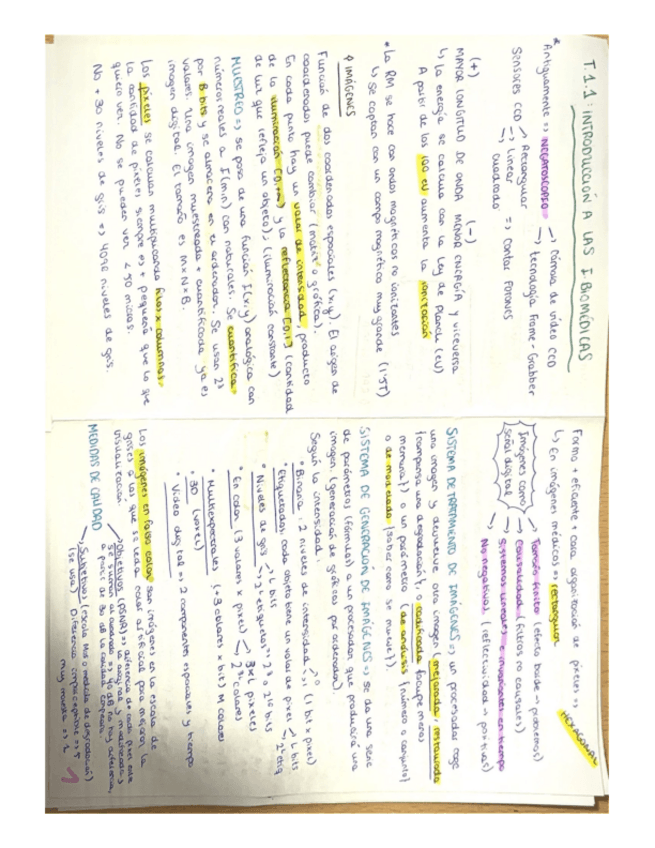 T.1.1: INTRODUCCIÓN A LAS I. BIOMÉDICAS
* Antiguamente => NEGATOSCOPIO => Cámara de vídeo CCD
tecnología Frame-Grabber
Sensores CCD Rectangular
Linear => Contar FOTONES
cuadrado
(+) (-)
MAYOR LONGITUD DE ONDA MENOR ENERGÍA y viceversa
↳ la energía se calcula con la Ley de Planck (eV)
A partir de los 100 eV aumenta la ionización
* La RM se hace con ondas magnéticas no ionizantes
↳ se captan con un campo magnético muy grande (1'5T)
IMÁGENES
Función de dos coordenadas espaciales (x,y). El origen de
coordenadas puede cambiar (matriz o gráfica).
En cada punto hay un valor de intensidad, producto
de la iluminación [0,+∞) y la reflectancia [0,1] (cantidad
de luz que refleja un objeto); (iluminación constante)
MUESTREO => se pasa de una función I(x,y) analógica con
números reales a I(m,n) con naturales. Se cuantifica
por B bits y se almacena en el ordenador. Se usan 2^B
valores. Una imagen muestreada + cuantificada ya es
imagen digital. El tamaño es M×N×B.
Los píxeles se calculan multiplicando filas x columnas.
la cantidad de píxeles siempre => + pequeña que lo que
quiero ver. No se pueden ver < 50 micras.
No + 30 niveles de gris => 4096 niveles de gris.
Forma + eficiente + cara organización de píxeles => HEXAGONAL
↳ En imágenes médicas => rectangular
Imágenes como señal digital
Tamaño finito (efecto borde -> problemas)
Causalidad (filtros no causales)
Sistemas lineales e invariantes en tiempo
No negativas (reflectividad + positivas)
SISTEMA DE TRATAMIENTO DE IMÁGENES => un procesador coge
una imagen y devuelve otra imagen (mejorada, restaurada
(compensa una degradación), o codificada (ocupe menos
memoria)) o un parámetro (de análisis (número o conjunto)
o de modelado (saber como se mueve)).
SISTEMA DE GENERACIÓN DE IMÁGENES => se da una serie
de parámetros (fórmulas) a un procesador que producirá una
imagen. (generación de gráficos por ordenador).
Según la intensidad:
* Binaria: 2 niveles de intensidad (1 bit x píxel)
* Etiquetadas: cada objeto tiene un valor de píxel
* Niveles de gris
* En color (3 valores x píxel)
* Multiespectrales (+3 colores x bits) M colores
* 3D (voxel)
* Vídeo digital => 2 componentes espaciales y tiempo
Las imágenes en falso color son imágenes en la escala de
grises a las que se le da color artificial para mejorar la
visualización.
MEDIDAS DE CALIDAD
Objetivas (PSNR) => diferencia de cada píxel entre
la original y modificada
Subjetivas (escala MOS o medida de degradación)
(se usa) Diferencia imperceptible => 5
muy molesta => 1
1